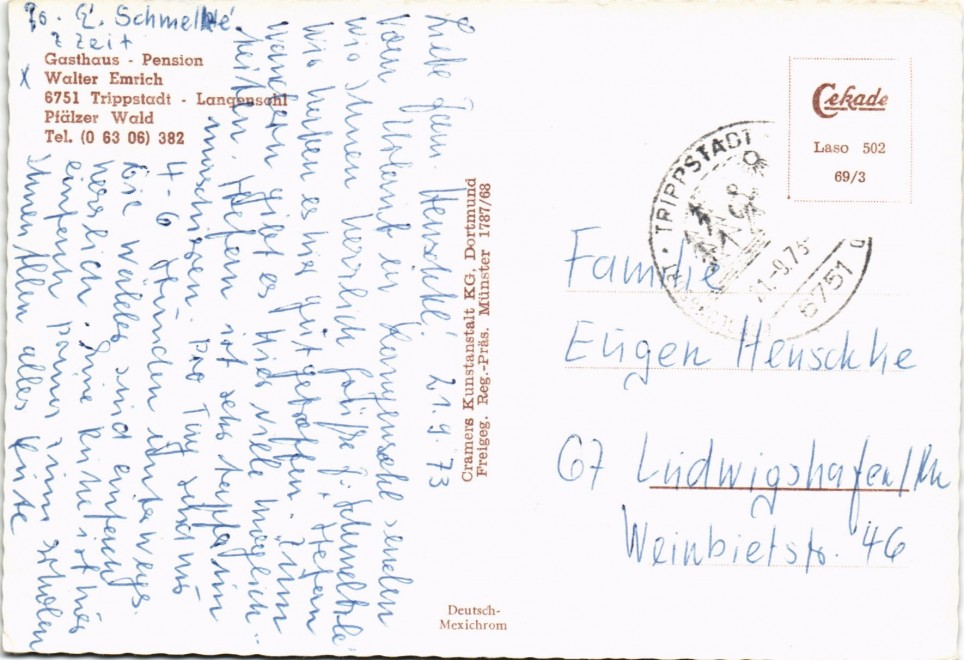 E. Schmeltle
z Zeit
Gasthaus - Pension
X Walter Emrich
6751 Trippstadt - Langensohl
Pfälzer Wald
Tel. (0 63 06) 382
Liebe Fam. Henschke, 21.9.73
vom Urlaub in Langensohl senden
wir Ihnen herzlich Grüße
Wir haben es hier gut getroffen. Zum
wandern giebt es hier viele möglich-
keiten. Stefan ist sehr tapfer im
marschieren. pro Tag sind wir
4-6 Stunden unterwegs.
Die Wälder sind einfach
herrlich. Eine Ruhe ist hier
einfach prima zum erholen
Ihnen Allen alles Gute
Cramers Kunstanstalt KG. Dortmund
Freigeg. Reg.-Präs. Münster 1787/68
Deutsch-
Mexichrom
Cekade
Laso 502
69/3
TRIPPSTADT
21.-9.73
6751
Familie
Eugen Henschke
67 Ludwigshafen/Rh
Weinbietstr. 46